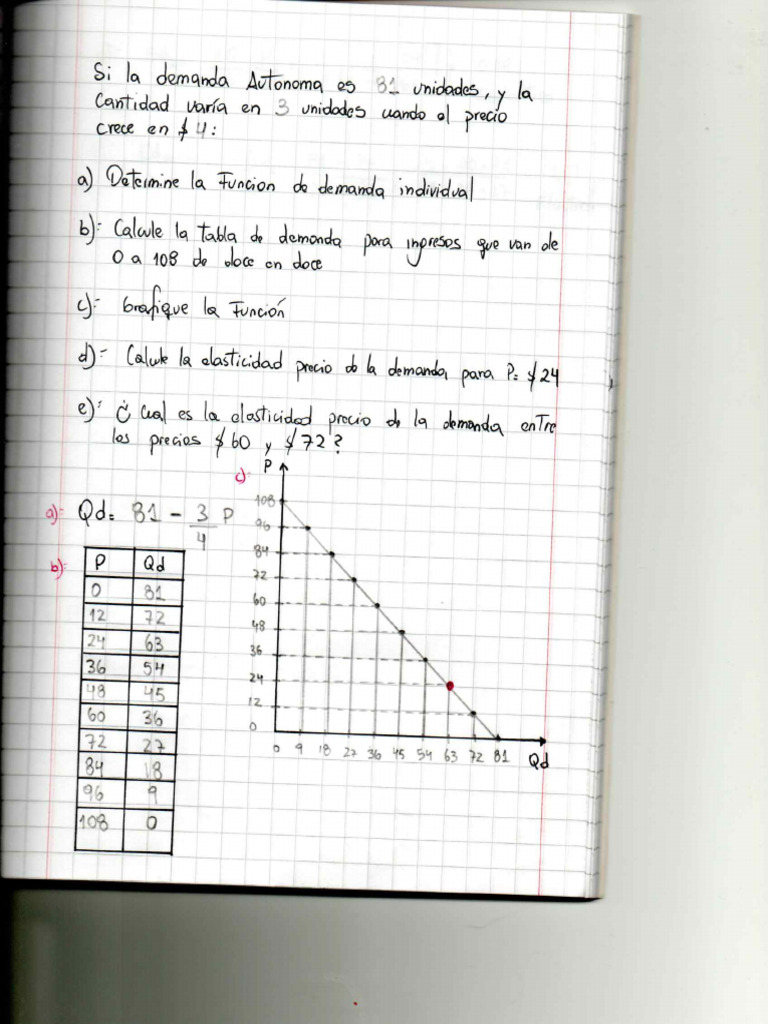 Si la demanda Autonoma es 81 unidades, y la
Cantidad varía en 3 unidades cuando el precio
crece en $4:
a) Determine la Funcion de demanda individual
b):- Calcule la tabla de demanda para ingresos que van de
0 a 108 de doce en doce
c):- Grafique la Función
d):- Calcule la elasticidad precio de la demanda, para P= $24
e):- ¿Cual es la elasticidad precio de la demanda enTre
los precios $60 y $72?
a):- Qd= 81 - 3/4 P
b):-
P Qd
0 81
12 72
24 63
36 54
48 45
60 36
72 27
84 18
96 9
108 0
c):-
P
108
96
84
72
60
48
36
24
12
0
0 9 18 27 36 45 54 63 72 81 Qd